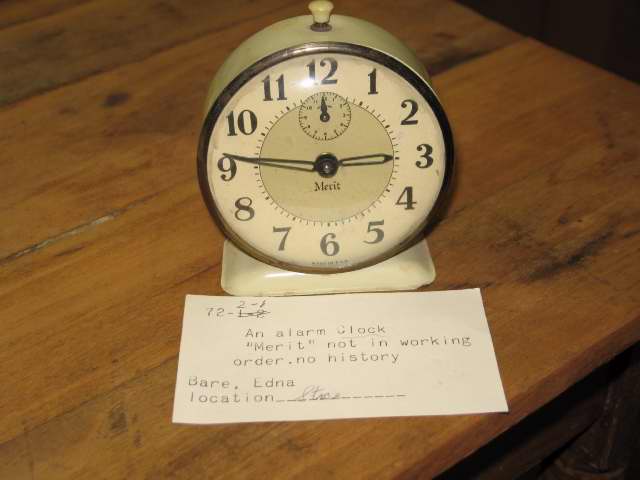 12
1
2
3
4
5
6
7
8
9
10
11
Merit
2-1
72-
An alarm Clock
"Merit" not in working
order.no history
Bare, Edna
location